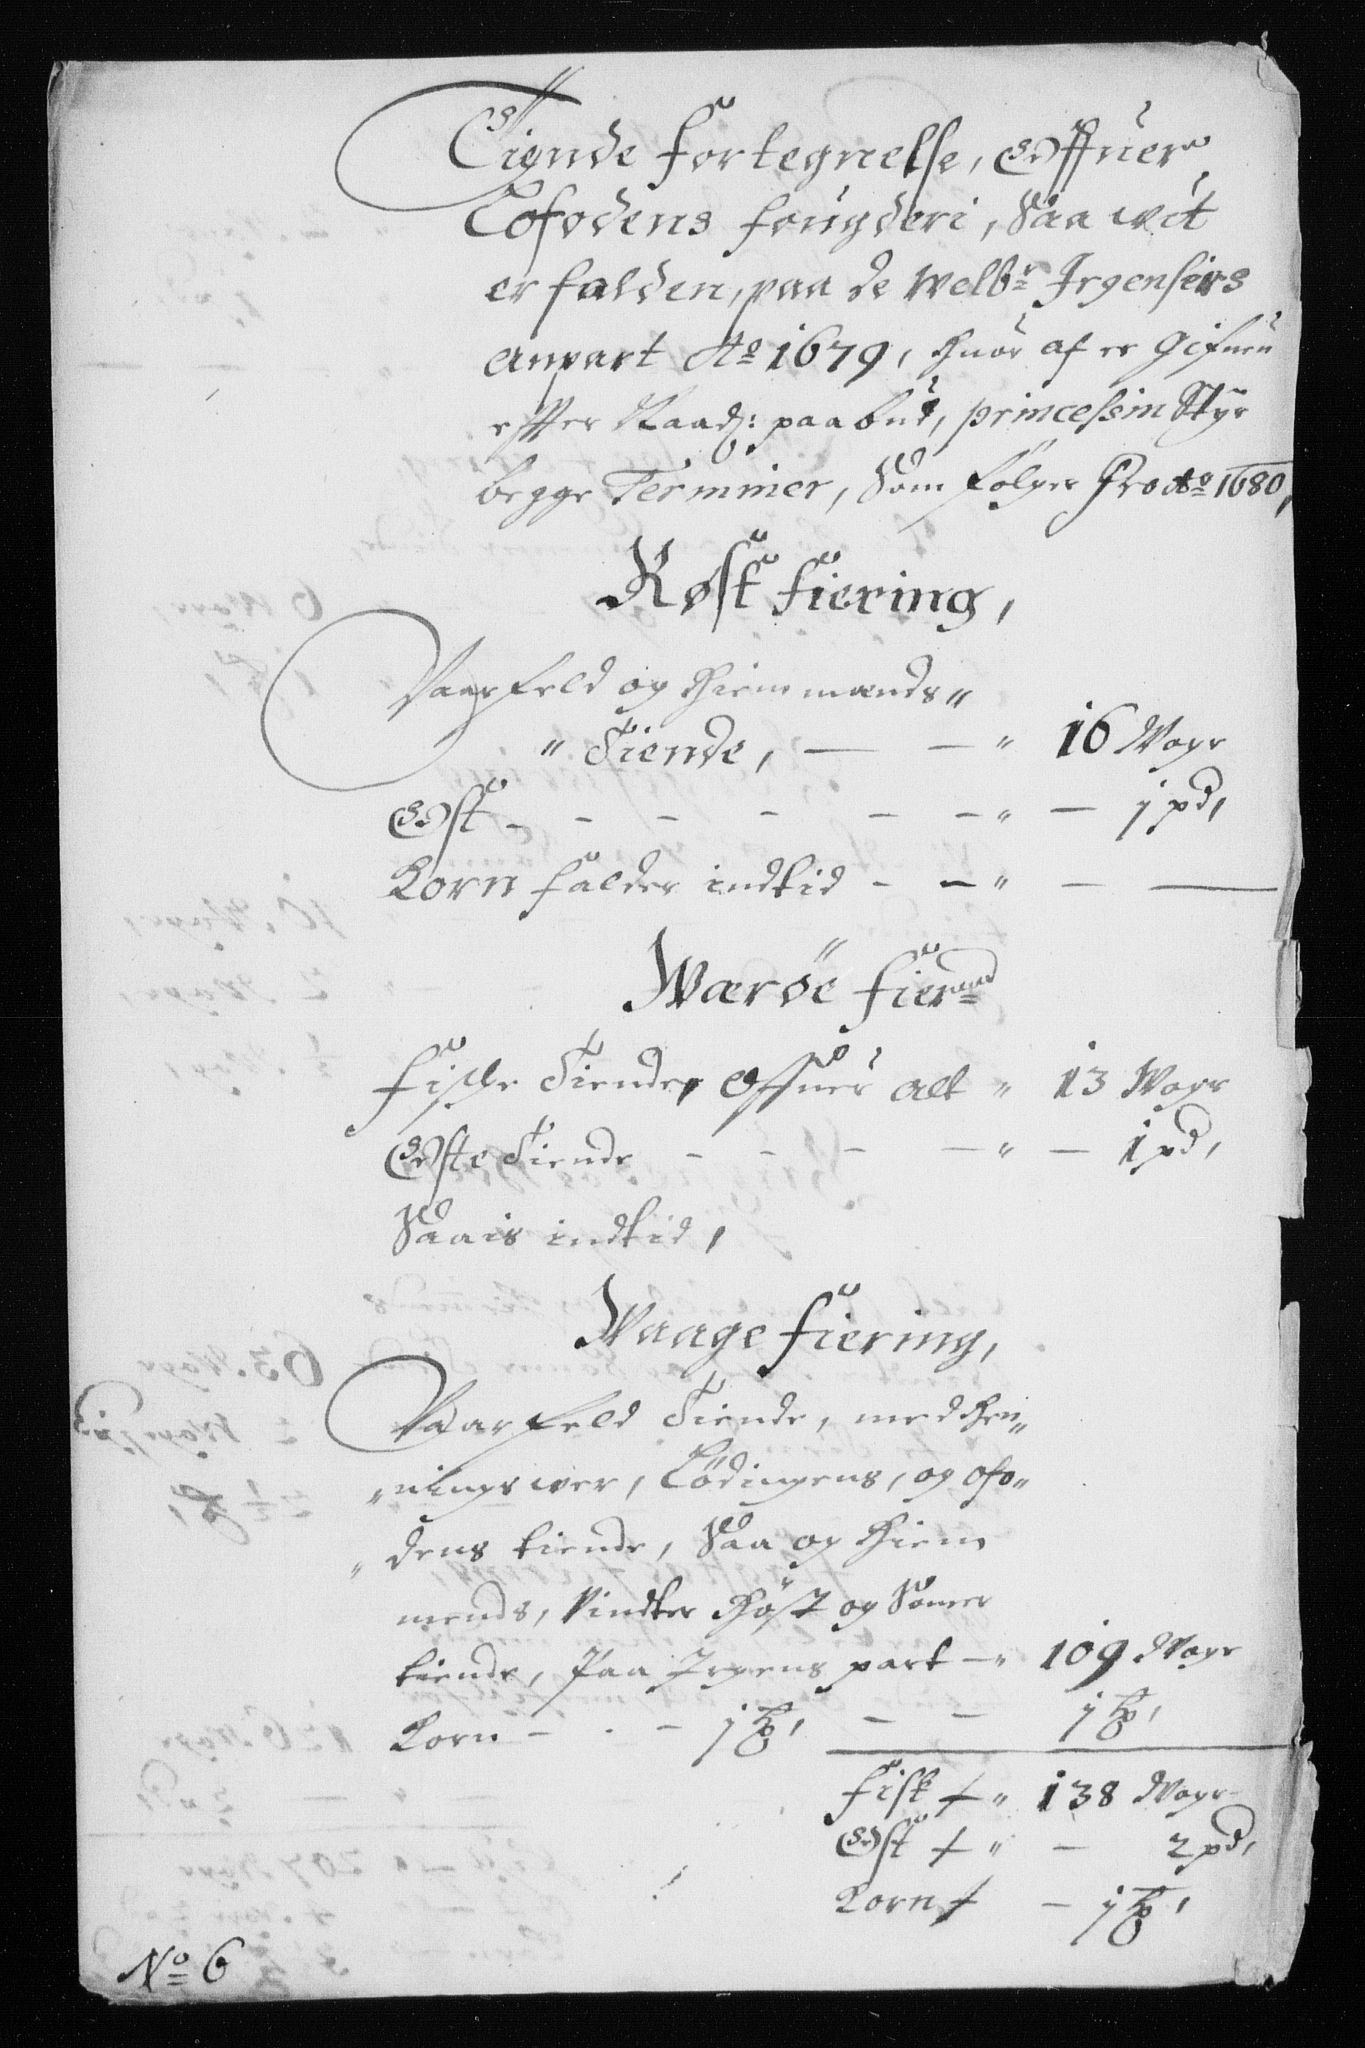 Tiende fortegnelse, Offuer
Lofodens fougderi, Saa vit
er falden, paa de Welb: Irgensers
anpart Ao 1679, huor af er Gifuen
effter Naad: paabud, princessin Styr
begge Terminer, Som følger Pro Ao 1680,
Røst fiering,
Vaarfeld og hiemmænds"
" Tiende, — — " 16 Woger
Ost - - - - - - " — 1 pd,
Korn falder indtid - - " — —
Wærøe fier
fiske Tiende, Offuer alt " 13 Woger
Oste Tiende - - - - " — 1 pd,
Saais indtid,
Waage fiering,
Vaarfeld Tiende, med Hen"
"ningswer, Lødingens, og Ofo"
"dens tiende, Saa og hiem
mends, Vindter Høst og Somer
tiende, Paa Irgens part — " 109 Woger
Korn - - - 1 — — 1
fisk " 138 Woger
Ost " — 2 pd,
Korn — 1
No 6